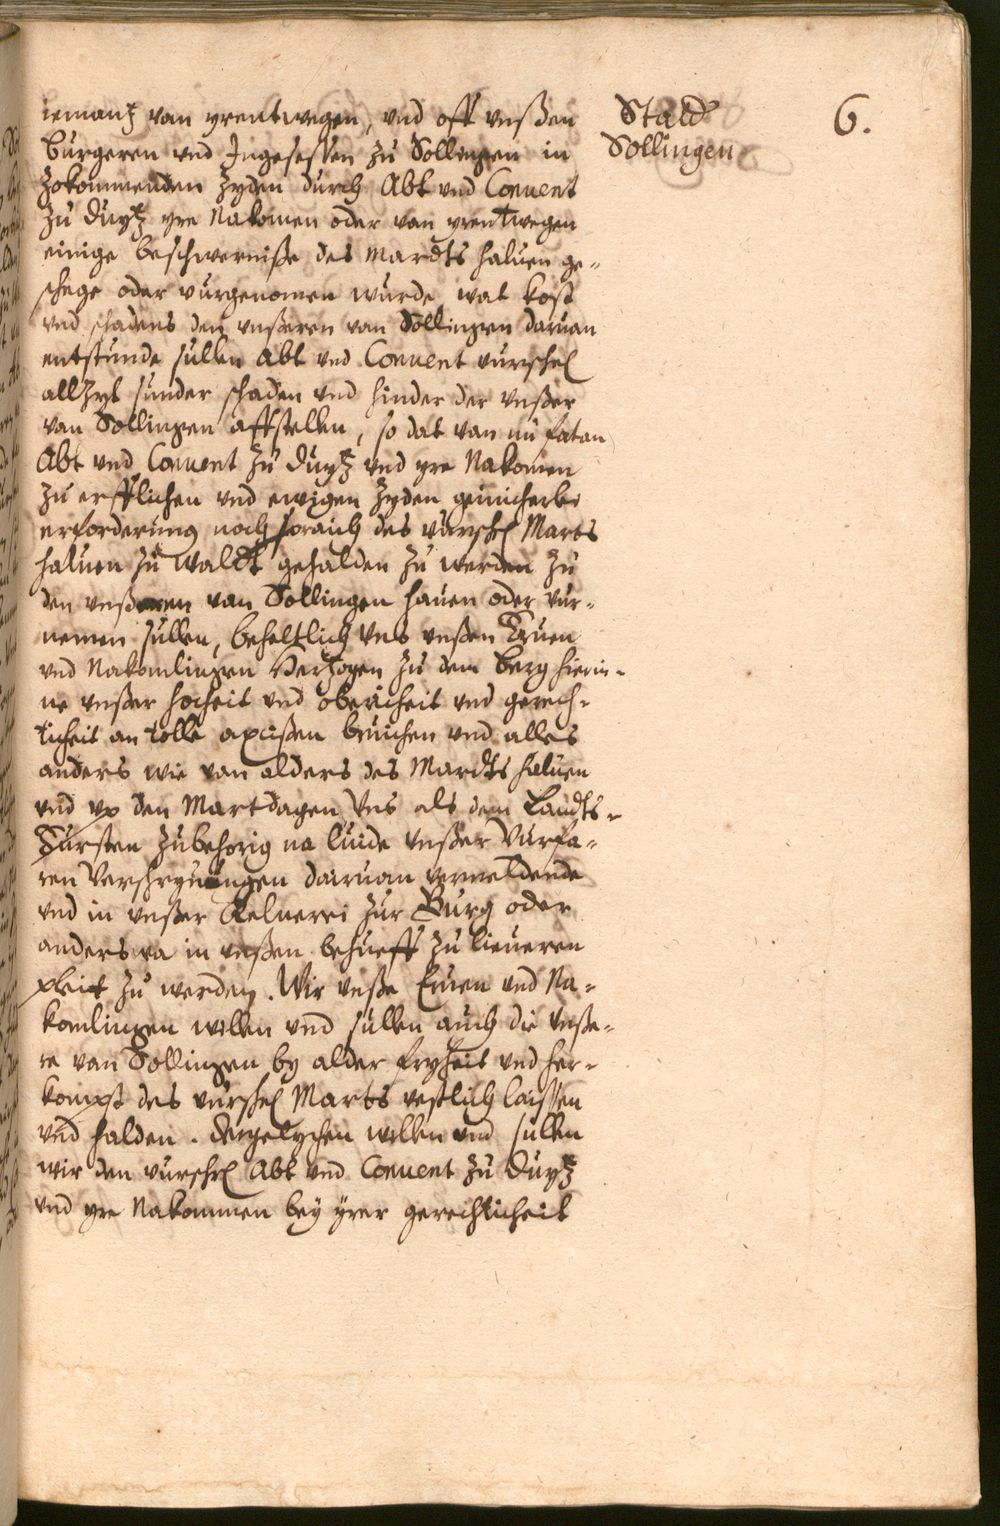 Stadt
Sollingen
6.
iemantz van yrentwegen, vnd off vnßen
burgeren vnd Ingesessen zu Sollingen in
zokommenden zyden durch Abt vnd Conuent
zu Duytz yre Nakomen oder van yrentwegen
einige beschwerniße des mardts haluen ge„
schege oder vurgenomen wurde, wat kost
vnd schadens den vnßeren van Sollingen daruan
entstunde sullen Abt vnd Conuent vursch
allzyt sunder schaden vnd hinder der vnßer
van Sollingen affstellen, so dat van nu fatan
Abt vnd Conuent zu Duytz vnd yre Nakomen
zu erfflichen vnd ewigen zyden geinicherlei
erforderung noch spraich des vursch Marts
haluen zu Waldt gehalden zu werden zu
den vnßeren van Sollingen hauen oder vur„
nemen sullen, beheltlich Vns vnßen Eruen
vnd Nakomlingen Hertzogen zu dem Berg hierin„
ne vnßer hocheit vnd obericheit vnd gerech„
ticheit an tolle axcißen bruichen vnd alles
anders wie van alders des Mardts haluen
vnd vp den Martdagen Vns als dem Landts„
Fursten zubehorig na luide vnßer Vurfa„
ren Verschryuungen dairuan vermeldende
vnd in vnßer Kelnerei zur Burg oder
anderswa in vnßen behueff zu lieueren
pleit zu werden. Wir vnße Eruen vnd Na„
komlingen willen vnd sullen auch die vnße„
re van Sollingen by alder fryheit vnd her„
kompst des vursch Marts vestlich laissen
vnd halden. dergelychen willen vnd sullen
wir den vursch Abt vnd Conuent zu Duytz
vnd yre Nakommen bey yrer gerechticheit